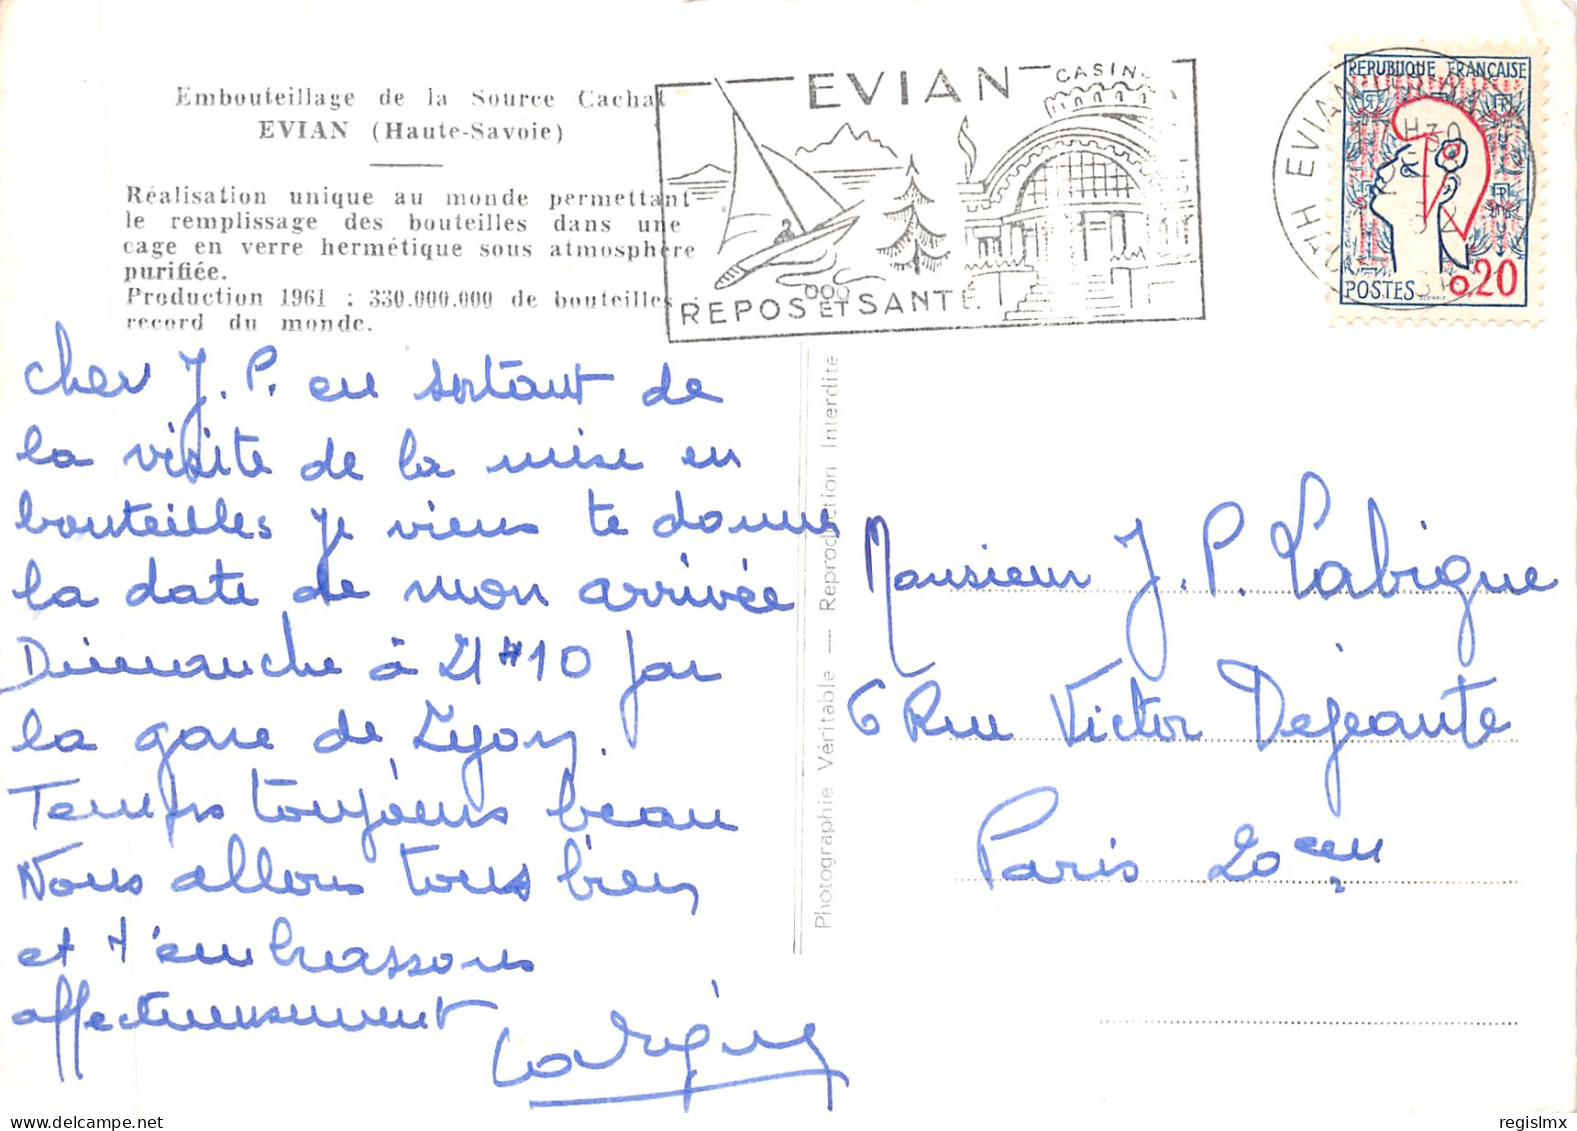 Embouteillage de la Source Cachat
EVIAN (Haute-Savoie)
Réalisation unique au monde permettant
le remplissage des bouteilles dans une
cage en verre hermétique sous atmosphère
purifiée.
Production 1961 : 330.000.000 de bouteilles
record du monde.
EVIAN
CASINO
REPOS ET SANTÉ
REPUBLIQUE FRANÇAISE
POSTES 0,20
EVIAN
cher J. P. en sortant de
la visite de la mise en
bouteilles je viens te donner
la date de mon arrivée
Dimanche à 21 H 10 par
la gare de Lyon.
Temps toujours beau
Nous allons tous bien
et t'embrassons
affectueusement
Labigne
Photographie Véritable — Reproduction Interdite
Monsieur J. P. Labigne
6 Rue Victor Dejeante
Paris 20eme
regisImx